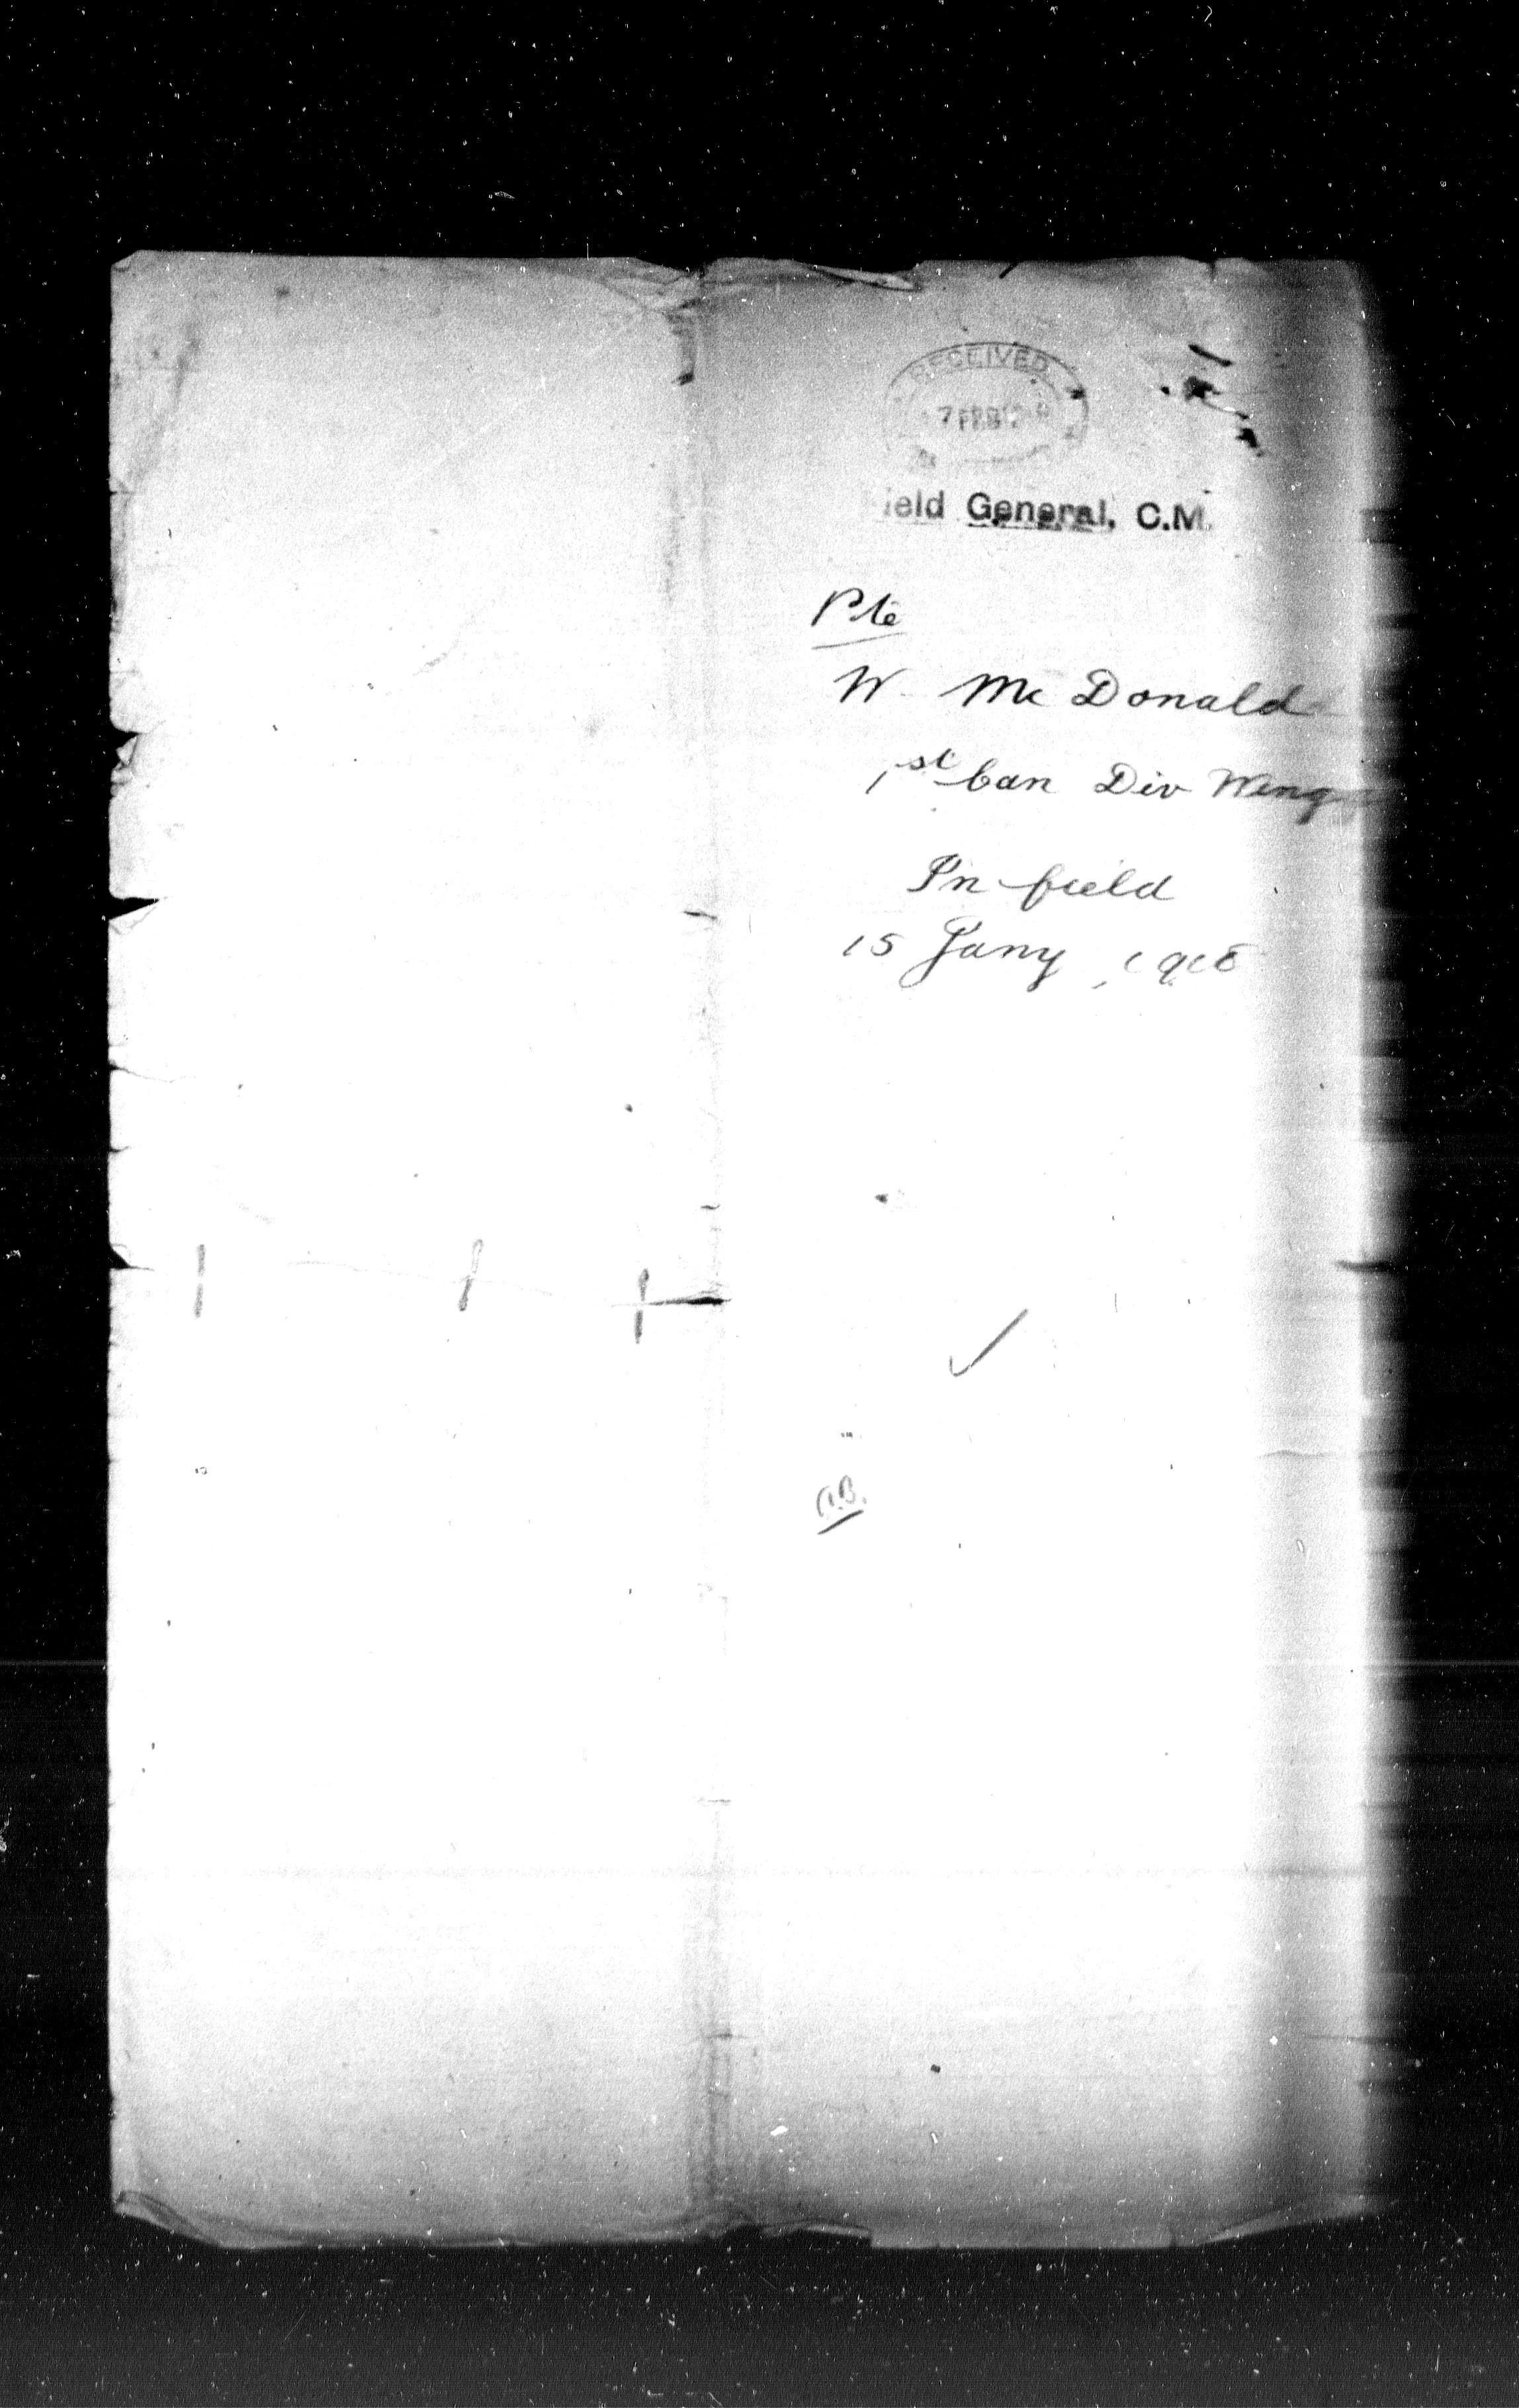 RECEIVED
7 FEB
ield General, C.M.
Pte
W. Mc Donald
1st Can Div Wing
In field
15 Jany 1918